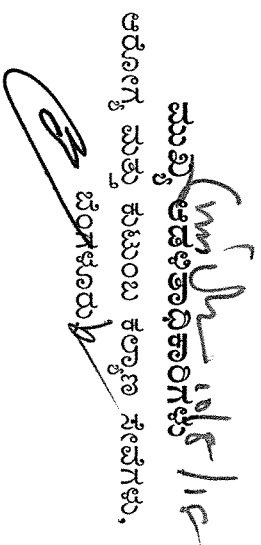 ಮುಖ್ಯ ಆಡಳಿತಾಧಿಕಾರಿಗಳು
ಆರೋಗ್ಯ ಮತ್ತು ಕುಟುಂಬ ಕಲ್ಯಾಣ ಸೇವೆಗಳು,
ಬೆಂಗಳೂರು